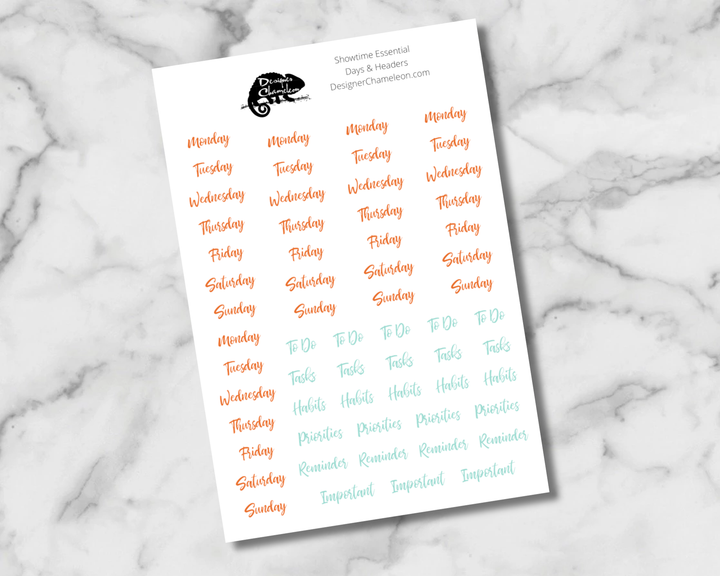 Designer
Chameleon
Showtime Essential
Days & Headers
DesignerChameleon.com
Monday Monday Monday Monday
Tuesday Tuesday Tuesday Tuesday
Wednesday Wednesday Wednesday Wednesday
Thursday Thursday Thursday Thursday
Friday Friday Friday Friday
Saturday Saturday Saturday Saturday
Sunday Sunday Sunday Sunday
Monday To Do To Do To Do To Do To Do
Tuesday Tasks Tasks Tasks Tasks Tasks
Wednesday Habits Habits Habits Habits Habits
Thursday Priorities Priorities Priorities Priorities
Friday Reminder Reminder Reminder Reminder
Saturday Important Important Important
Sunday